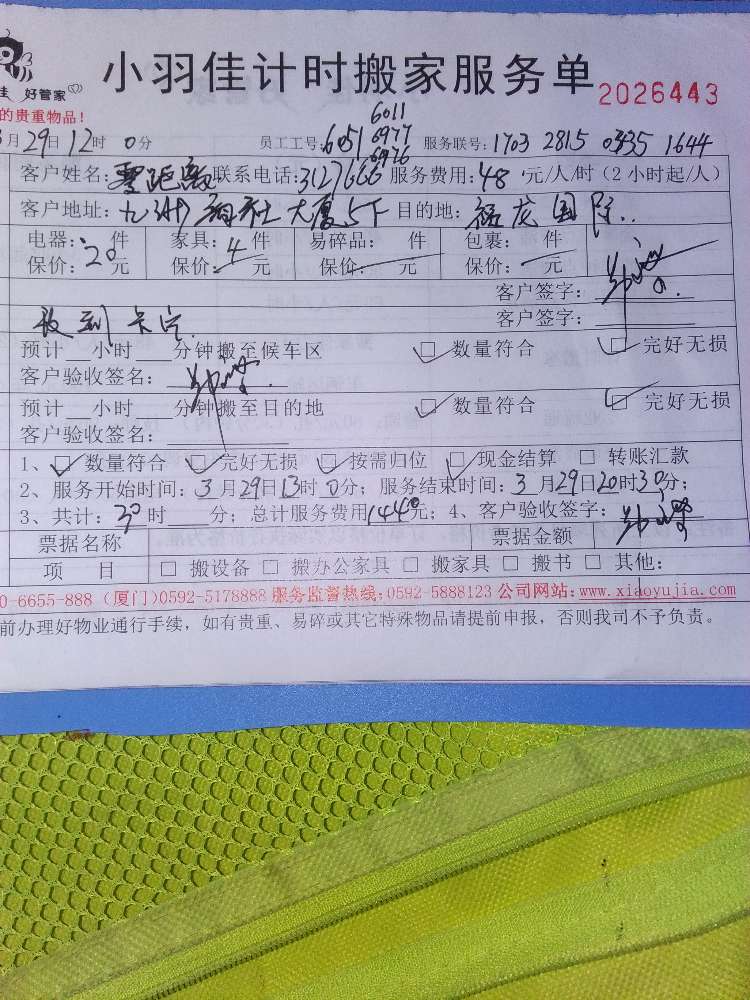 小羽佳计时搬家服务单 2026443
佳 好管家
的贵重物品!
6011
3月29日12时0分 员工工号:6051 6977 服务联号:1703 2815 0335 1644
6976
客户姓名:零距离 联系电话:3127666 服务费用:48 元/人/时(2小时起/人)
客户地址:九洲 大厦5下 目的地:福龙国际..
电器: 件 家具: 4件 易碎品: 件 包裹: 件
保价:20元 保价: 元 保价: 元 保价: 元
客户签字:
客户签字:
收到卡片
预计__小时___分钟搬至候车区 ☑数量符合 ☑完好无损
客户验收签名:
预计__小时___分钟搬至目的地 ☑数量符合 ☑完好无损
客户验收签名:
1、☑数量符合 ☑完好无损 ☑按需归位 ☑现金结算 □转账汇款
2、服务开始时间:3月29日13时0分;服务结束时间:3月29日20时30分;
3、共计: 时___分;总计服务费用1440元;4、客户验收签字:
票据名称 票据金额
项 目 □搬设备 □搬办公家具 □搬家具 □搬书 □其他:
0-6655-888(厦门)0592-5178888 服务监督热线:0592-5888123 公司网站:www.xiaoyujia.com
前办理好物业通行手续,如有贵重、易碎或其它特殊物品请提前申报,否则我司不予负责。